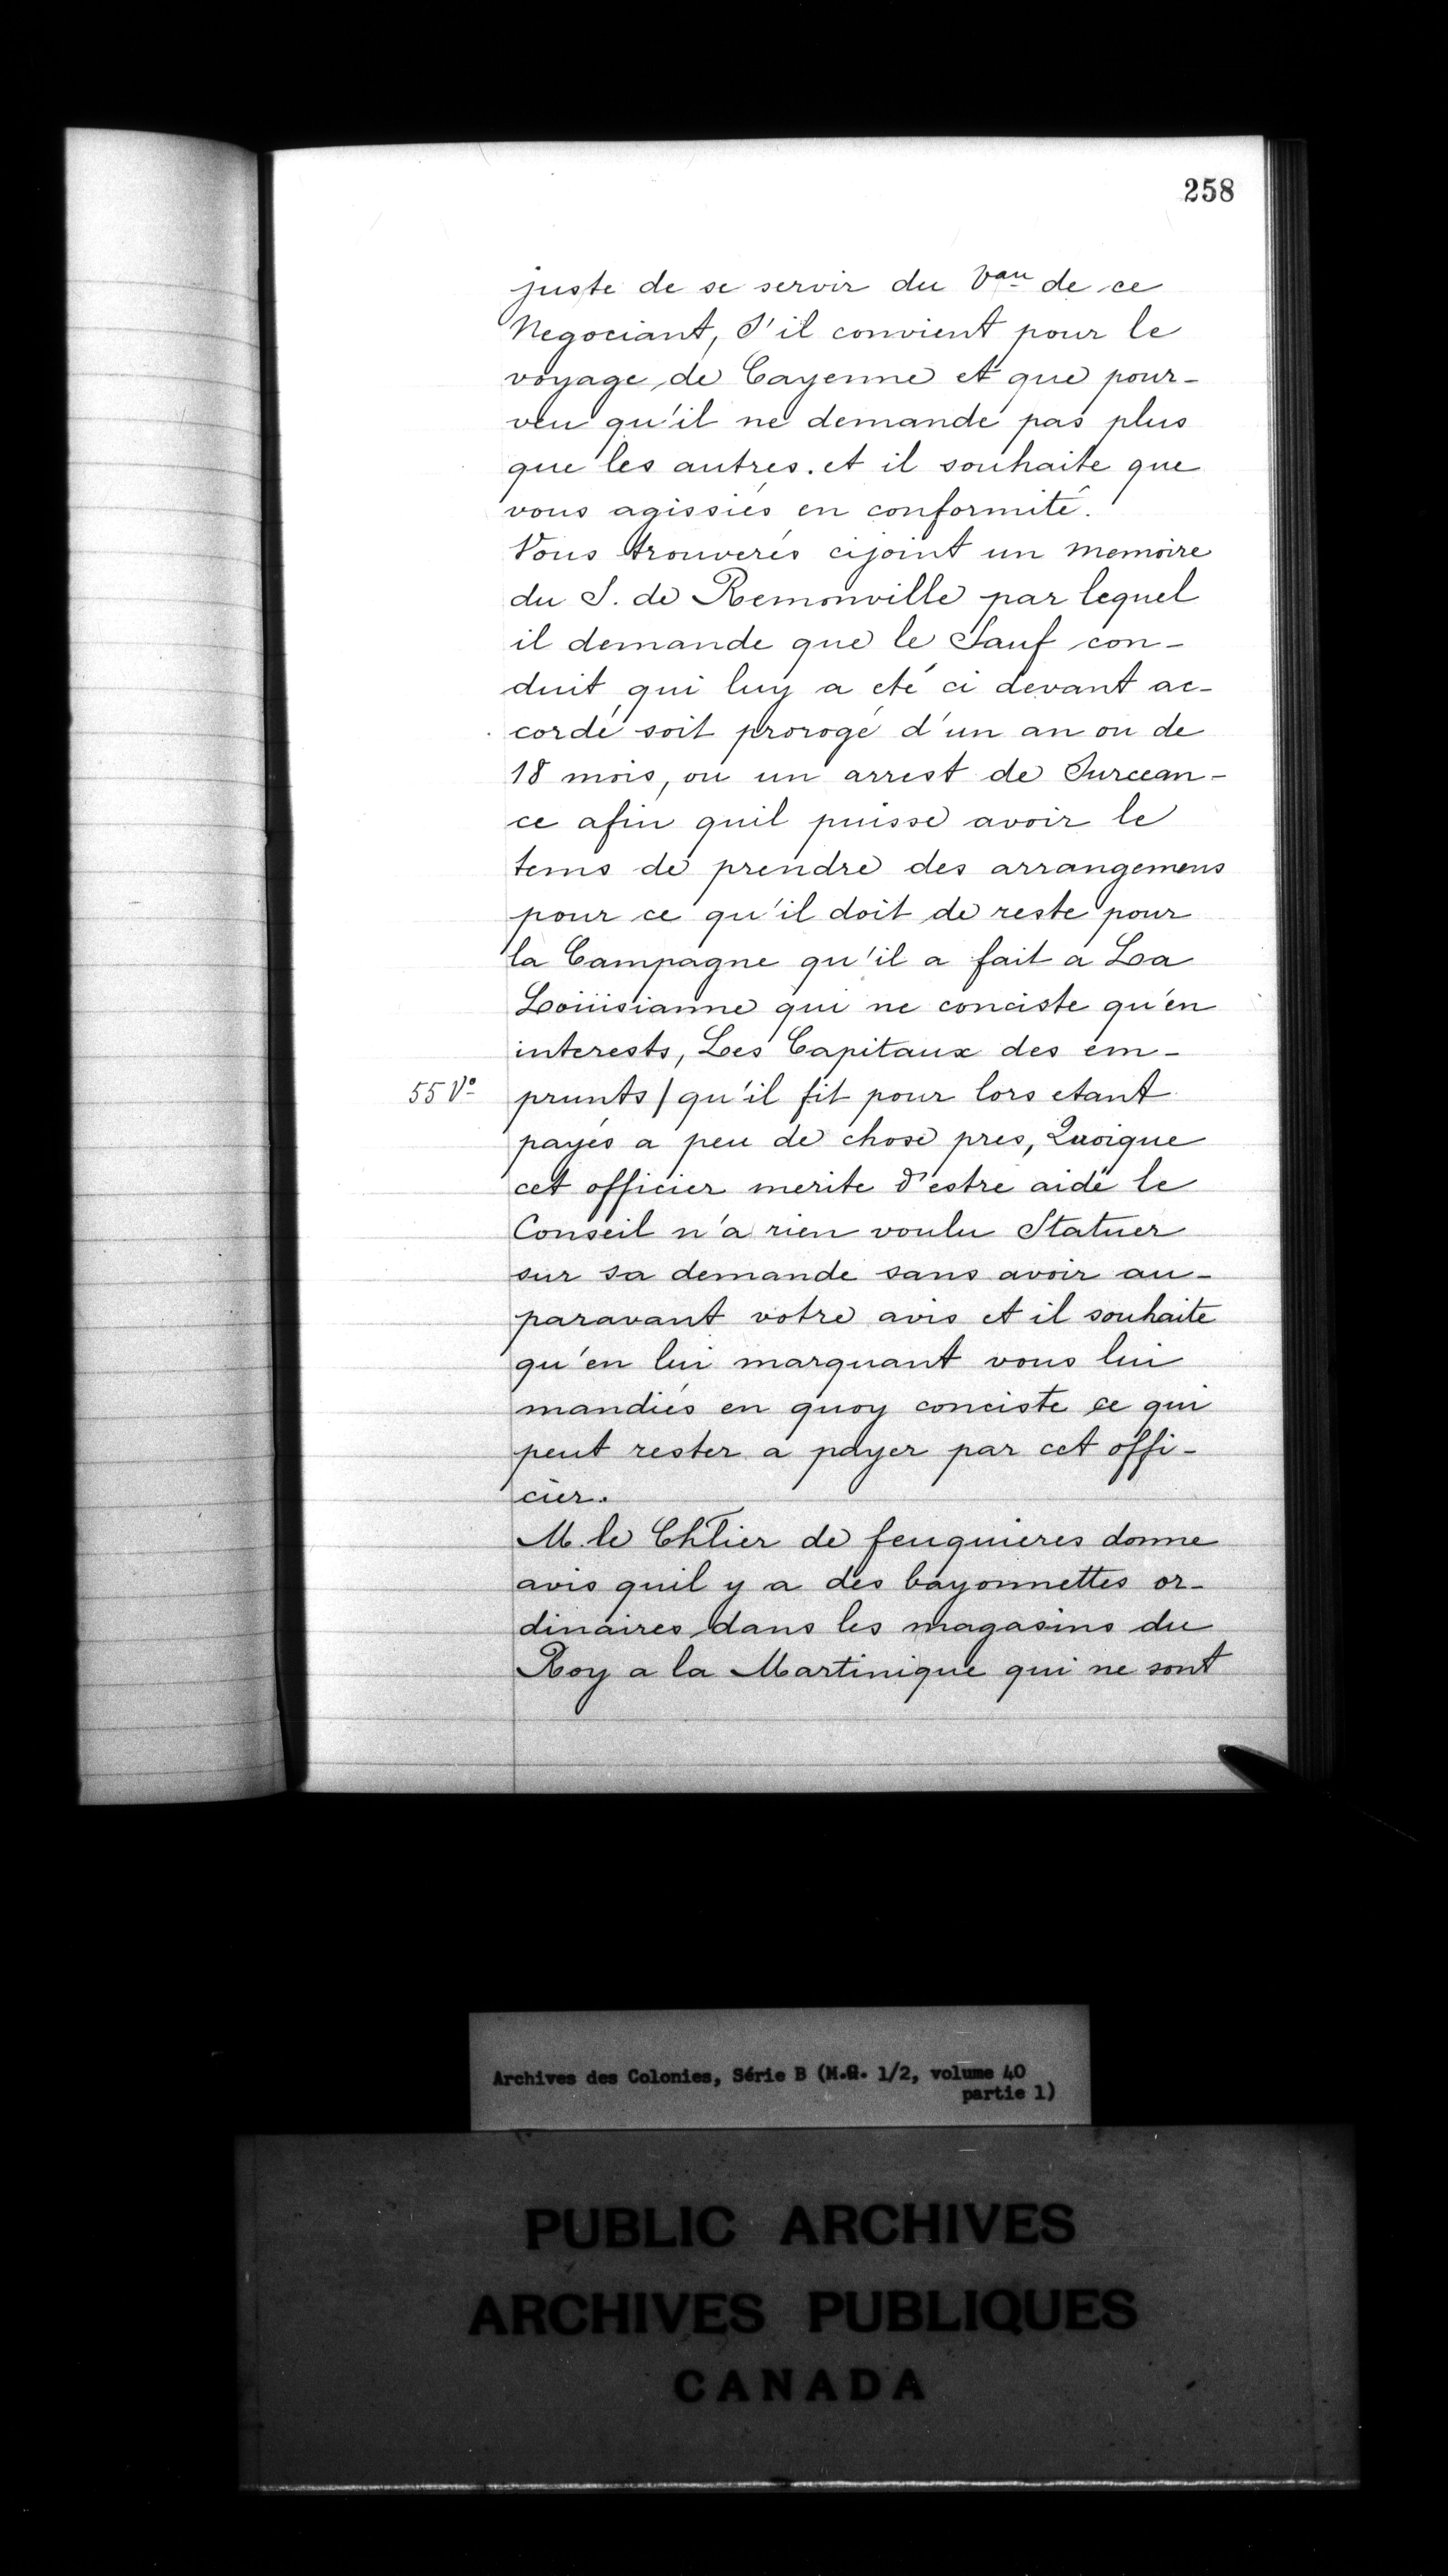 258
juste de se servir du Vau de ce
Negociant, S'il convient pour le
voyage de Cayenne et que pour-
veu qu'il ne demande pas plus
que les autres. et il souhaite que
vous agissiés en conformité.
Vous trouverés cijoint un memoire
du S. de Remonville par lequel
il demande que le Sauf con-
duit qui luy a eté ci devant ac-
cordé soit prorogé d'un an ou de
18 mois, ou un arrest de Surcean-
ce afin quil puisse avoir le
tems de prendre des arrangemens
pour ce qu'il doit de reste pour
la Campagne qu'il a fait a La
Loüisianne qui ne conciste qu'en
interests, Les Capitaux des em-
55 Vo prunts / qu'il fit pour lors etant
payés a peu de chose pres, Quoique
cet officier merite d'estre aidé le
Conseil n'a rien voulu Statuer
sur sa demande sans avoir au-
paravant votre avis et il souhaite
qu'en lui marquant vous lui
mandiés en quoy conciste ce qui
peut rester a payer par cet offi-
cier.
M. le Chlier de feuquieres donne
avis quil y a des bayonnettes or-
dinaires dans les magasins du
Roy a la Martinique qui ne sont
Archives des Colonies, Série B (M.G. 1/2, volume 40
partie 1)
PUBLIC ARCHIVES
ARCHIVES PUBLIQUES
CANADA